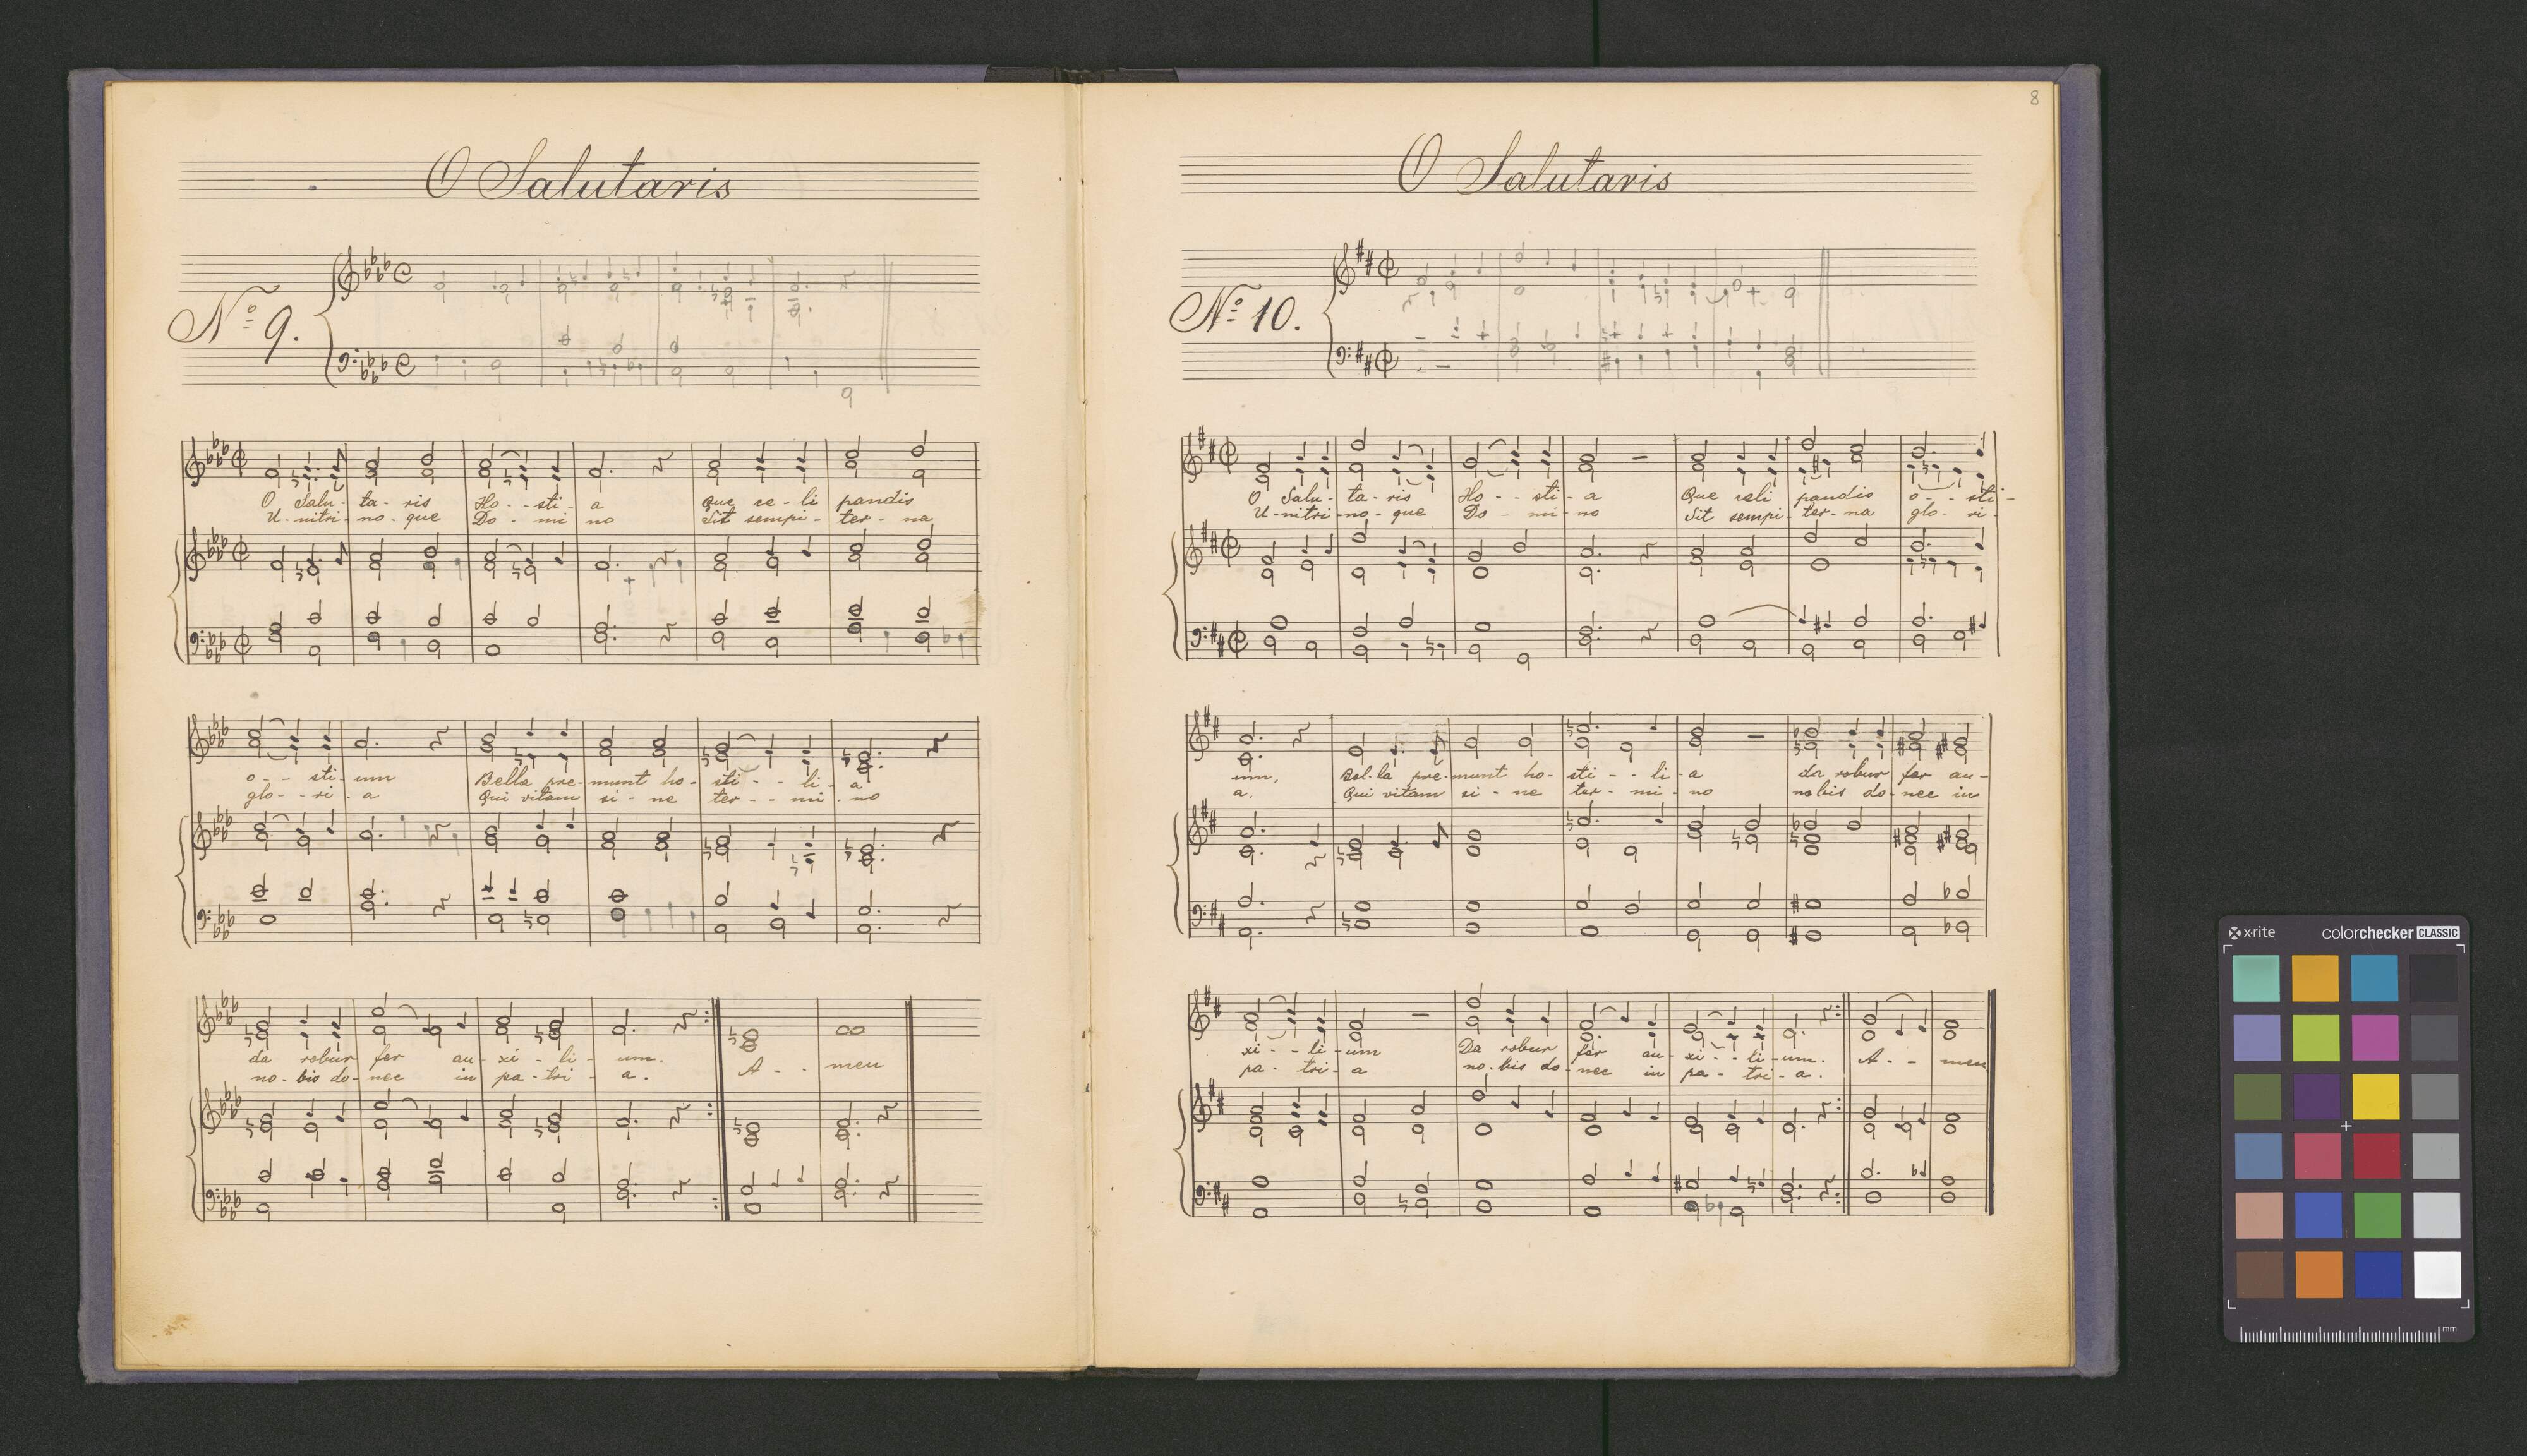 O Salutaris
Nº 9.
O Salu- ta- ris Ho- - sti- a Que ce- li pandis
U- nitri- no- que Do- mi no Sit sempi- ter- na
o- - sti- um Bella pre- munt ho- sti- - li- a
glo- - ri- a Qui vitam si- ne ter- - mi- no
da robur fer au- xi- li- um. A- - men
no- bis do- nec in pa- tri- a.
8
O Salutaris
Nº 10.
O Salu- ta- ris Ho- - sti- a Que celi pandis o- - sti-
U- nitri- no- que Do- mi- no Sit sempi- ter- na glo- ri-
um. Bel- la pre- munt ho- sti- - li- a da robur fer au-
a. Qui vitam si- ne ter- mi- no nobis do- nec in
xi- - li- um Da robur fer au- xi- - li- um. A- - men.
pa- tri- a no- bis do- nec in pa- tri- a.
x-rite colorchecker CLASSIC
mm